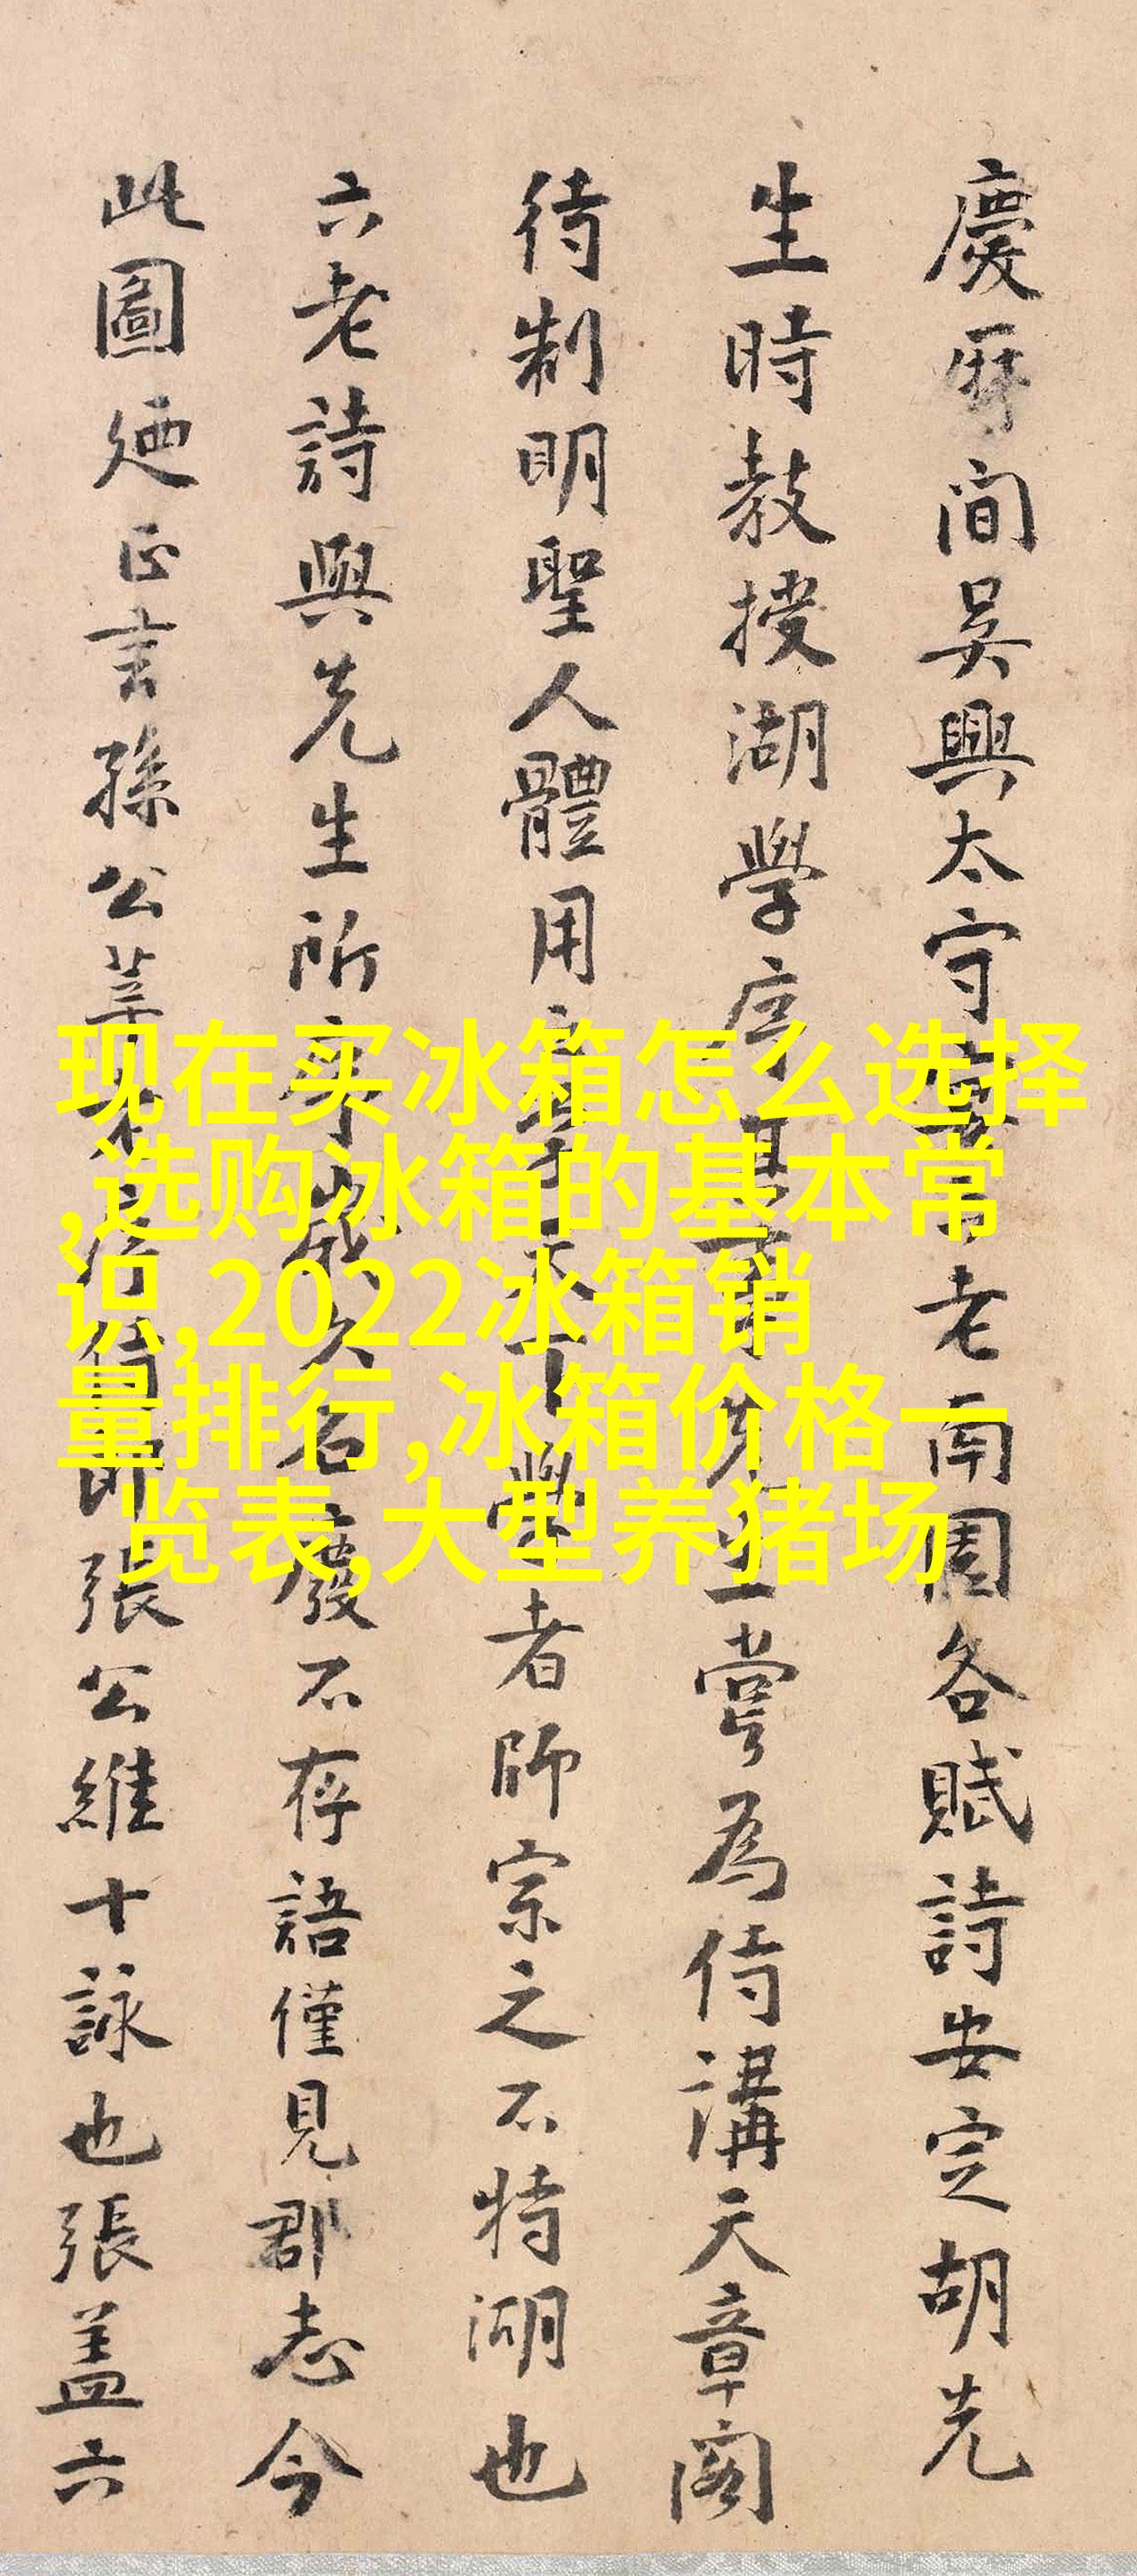 慶曆間吳興太守宴六老南園各賦詩安定胡先
生時教授湖學序其事先生嘗為侍講天章閣
待制明聖人體用之學天下學者師宗之不特湖也
六老詩與先生所序歲久石廢不存語僅見郡志今
此圖廼正言孫公莘
侍郎張公維十詠也張蓋六
现在买冰箱怎么选择
,选购冰箱的基本常
识,2022冰箱销
量排行,冰箱价格一
览表,大型养猪场